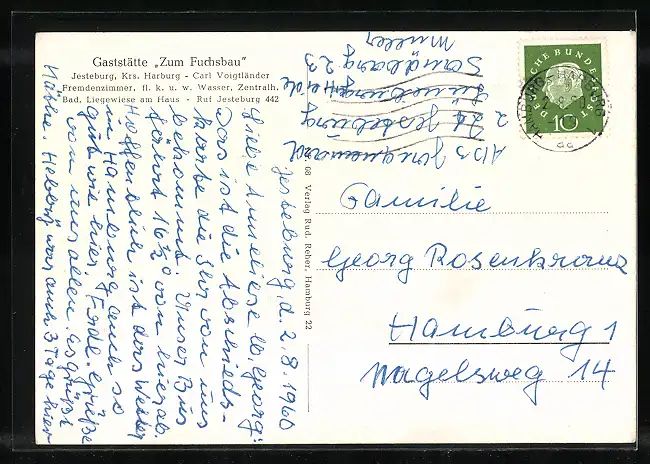 Gaststätte „Zum Fuchsbau"
Jesteburg, Krs. Harburg - Carl Voigtländer
Fremdenzimmer, fl. k. u. w. Wasser, Zentralh.
Bad, Liegewiese am Haus - Ruf Jesteburg 442
Jesteburg, d. 2.8.1960
Liebe Anneliese lb. Georg.
Das ist die Abschieds-
karte die Ihr von uns
bekommt. Unser Bus
fährt 16½ von hier ab.
Hoffentlich ist das Wetter
in Hamburg auch so
gut wie hier. Frdl. Grüße
von uns allen. Es grüßt
Käthe. Hedwig war auch 3 Tage hier
Abs
2 Zt Jesteburg
Lüneburger Heide
Sandbarg 23
Müller
68 Verlag Rud. Reher, Hamburg 22
DEUTSCHE BUNDESPOST
10
Familie
Georg Rosenkranz
Hamburg 1
Nagelsweg 14